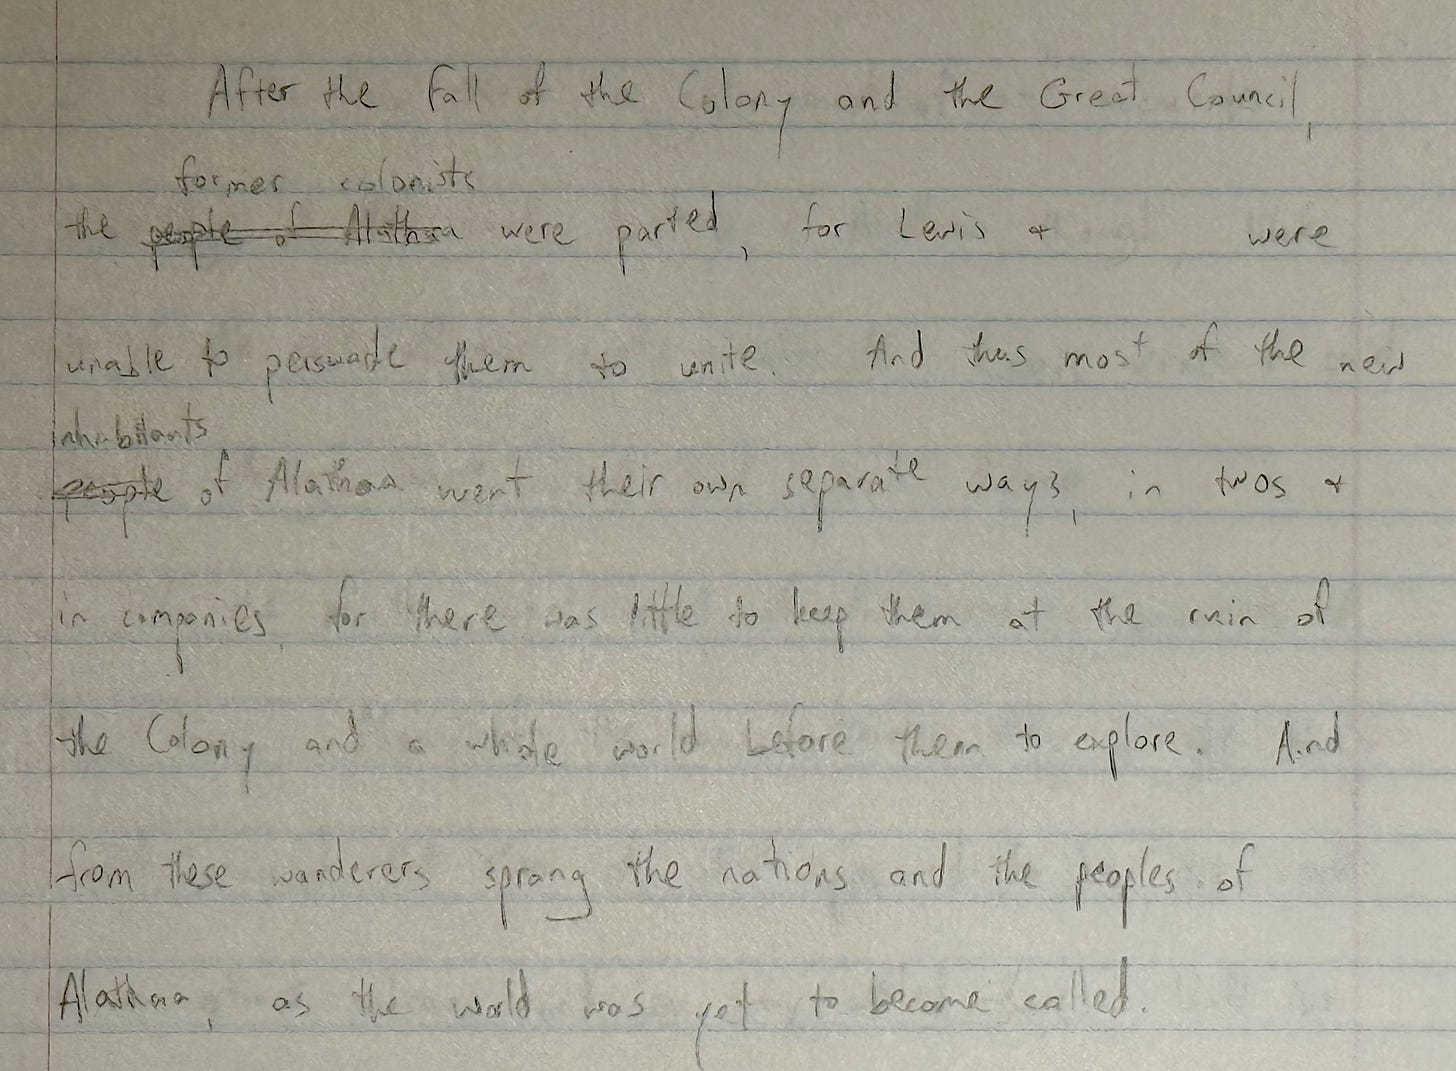 After the Fall of the Colony and the Great Council,
former colonists
the people of Alathaa were parted, for Lewis & were
unable to perswade them to unite. And thus most of the new
inhabitants
people of Alathaa went their own separate ways, in twos &
in companies, for there was little to keep them at the ruin of
the Colony and a whole world before them to explore. And
from these wanderers sprang the nations and the peoples of
Alathaa, as the world was yet to become called.